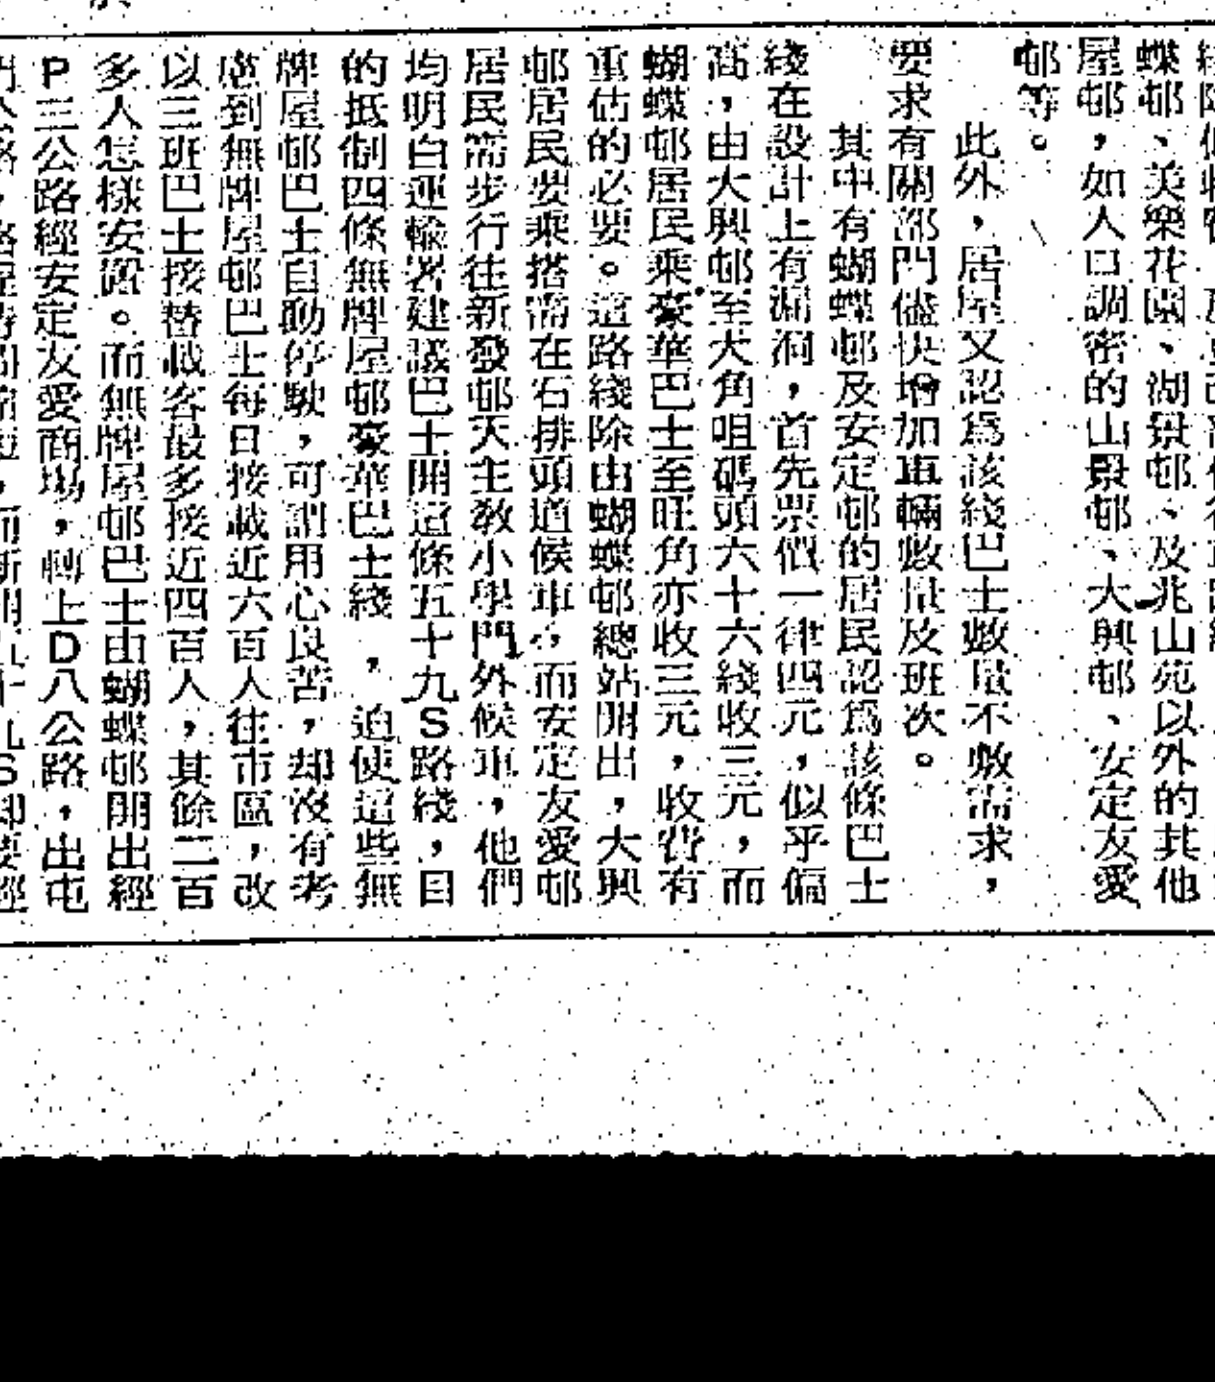 蝶邨、美樂花園、湖景邨、及兆山苑以外的其他
屋邨，如人口調密的山景邨、大興邨、安定友愛
邨等。
此外，居屋又認爲該綫巴士數量不敷需求，
要求有關部門儘快增加車輛數量及班次。
其中有蝴蝶邨及安定邨的居民認爲該條巴士
綫在設計上有漏洞，首先票價一律四元，似乎偏
高，由大興邨至大角咀碼頭六十六綫收三元，而
蝴蝶邨居民乘豪華巴士至旺角亦收三元，收費有
重估的必要。這路綫除由蝴蝶邨總站開出，大興
邨居民要乘搭需在石排頭道候車，而安定友愛邨
居民需步行往新發邨天主教小學門外候車，他們
均明白運輸署建議巴士開這條五十九S路綫，目
的抵制四條無牌屋邨豪華巴士綫，迫使這些無
牌屋邨巴士自動停駛，可謂用心良苦，却沒有考
慮到無牌屋邨巴士每日接載近六百人往市區，改
以三班巴士接替載客最多接近四百人，其餘二百
多人怎樣安置。而無牌屋邨巴士由蝴蝶邨開出經
P三公路經安定友愛商場，轉上D八公路，出屯